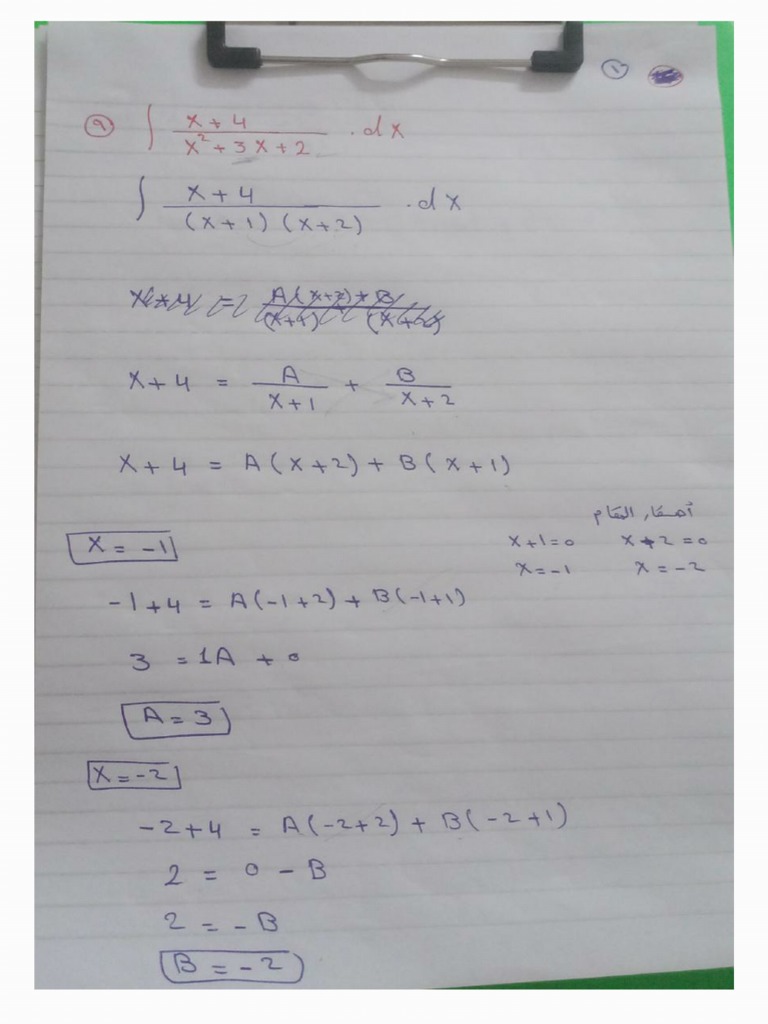 ١
٩ ∫ x+4 / x²+3x+2 . dx
∫ x+4 / (x+1) (x+2) . dx
x+4 = A / x+1 + B / x+2
x+4 = A(x+2) + B(x+1)
أصفار المقام
x+1=0 x+2=0
x=-1 x=-2
x = -1
-1+4 = A(-1+2) + B(-1+1)
3 = 1A + 0
A = 3
x=-2
-2+4 = A(-2+2) + B(-2+1)
2 = 0 - B
2 = - B
B = -2